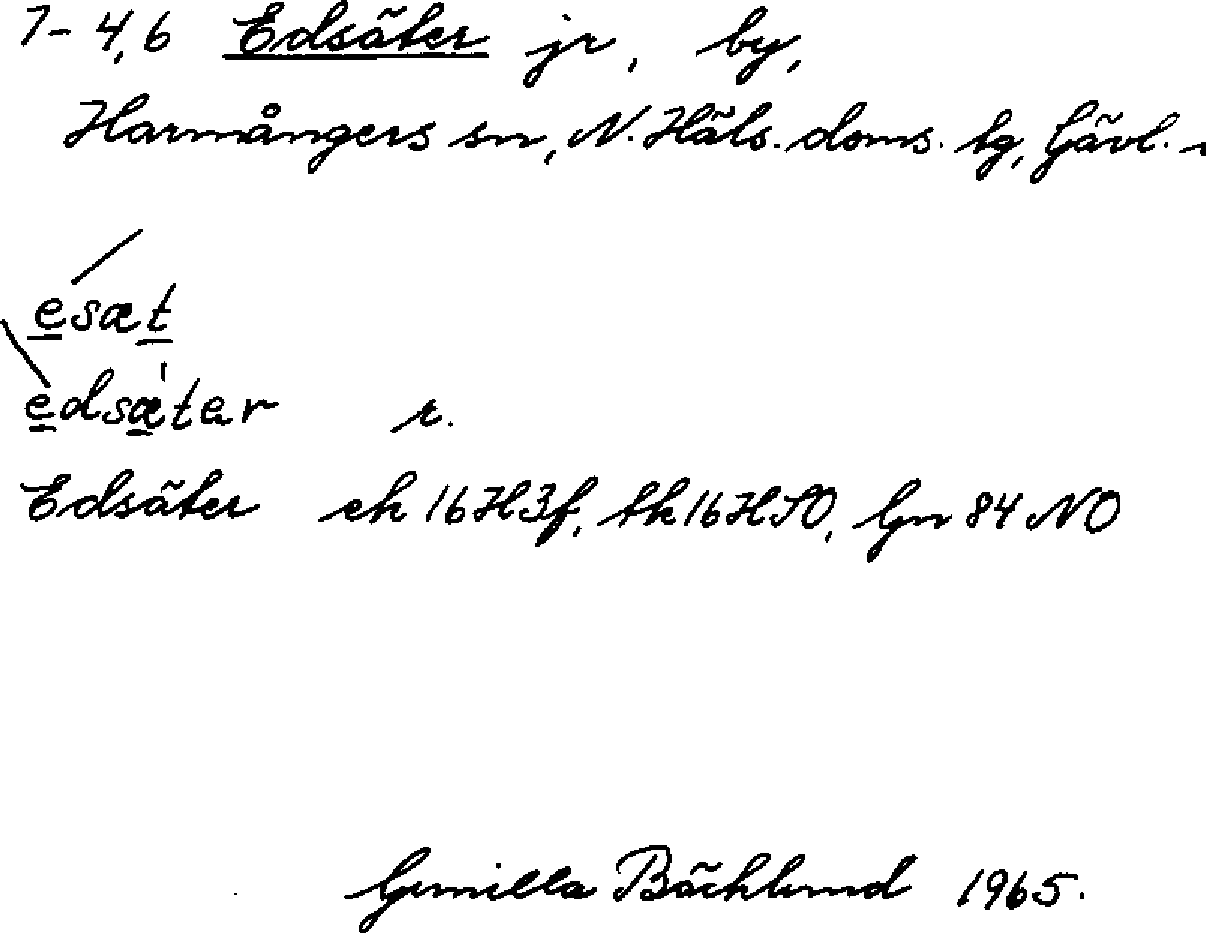 7-4,6 Edsäter jr, by,
Harmångers sn, N. Häls. doms. tg, Gävl.
esæt
edsætar r.
Edsäter ek 16H3f, tk16HSO, Gn 84 NO
Gunilla Bäcklund 1965.